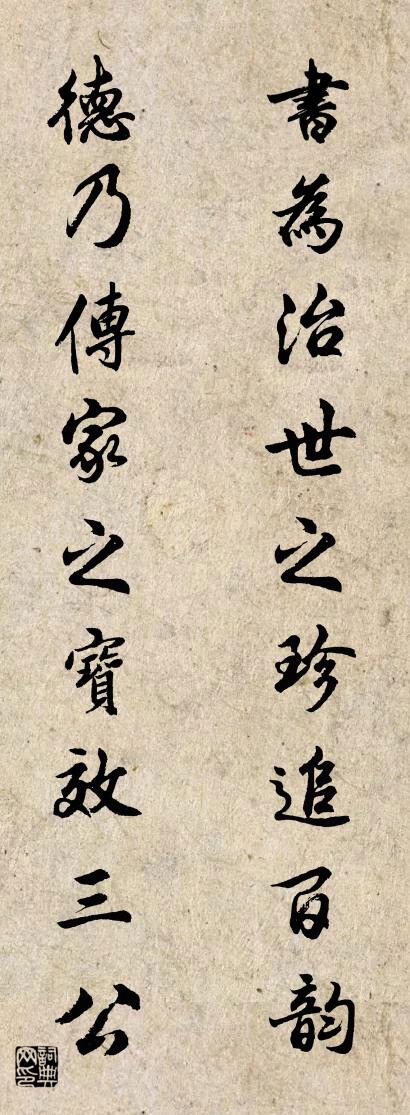 書為治世之珍追百韵
德乃傳家之寶效三公
詞典網印